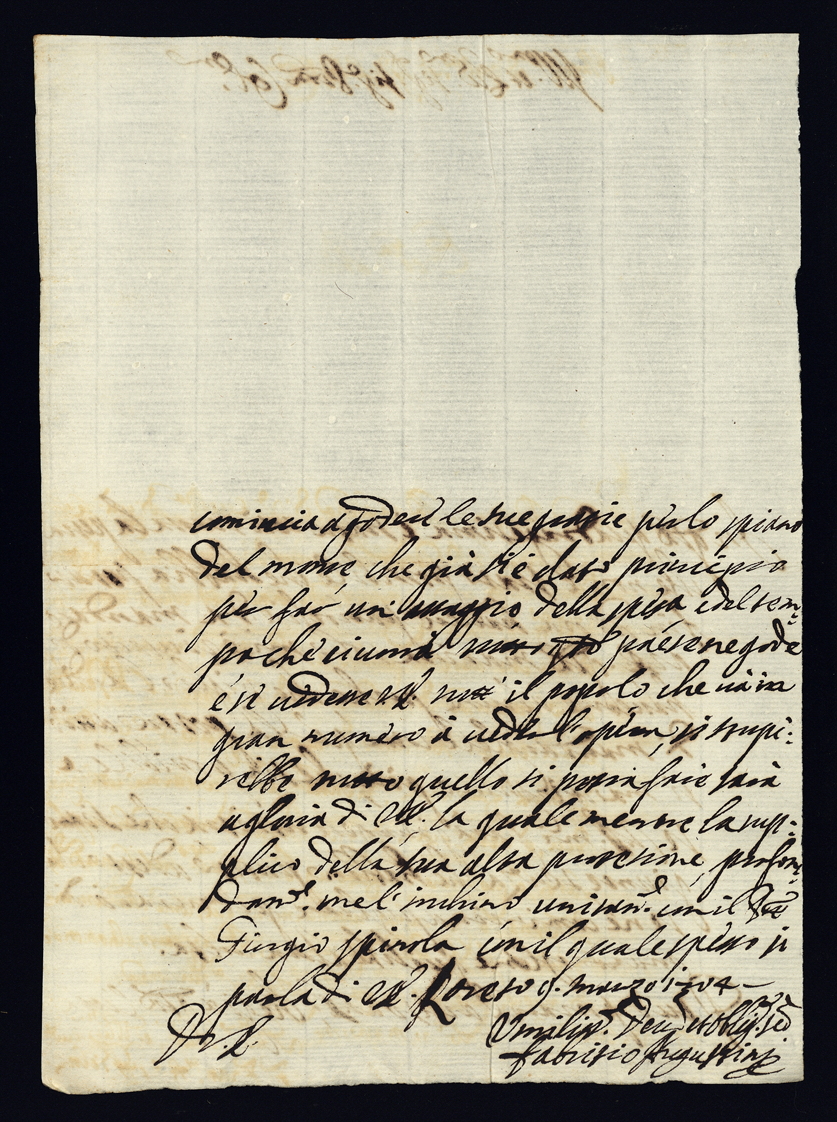 comincia a godere le sue grazie per lo spiano
del monte che già si è dato principio
per far un avanzo della spesa e del tem
po che ci vorrà tutto gto paese ne gode
e se vedesse V.E. tutt' il popolo che và in
gran numero à veder l'opera, si stupi:
rebbe tutto quello si potrà fare sarà
a gloria di V.E. la quale mentre la sup:
plico della sua alta protezione, profon
dam.te me l'inchino unitam.te con il
Giorgio Spinola con il quale spesso si
parla di V.E. Loreto 9. marzo 1704
Di V.E.
Umiliss. Dev. et obblig. se
Fabritio Augustini